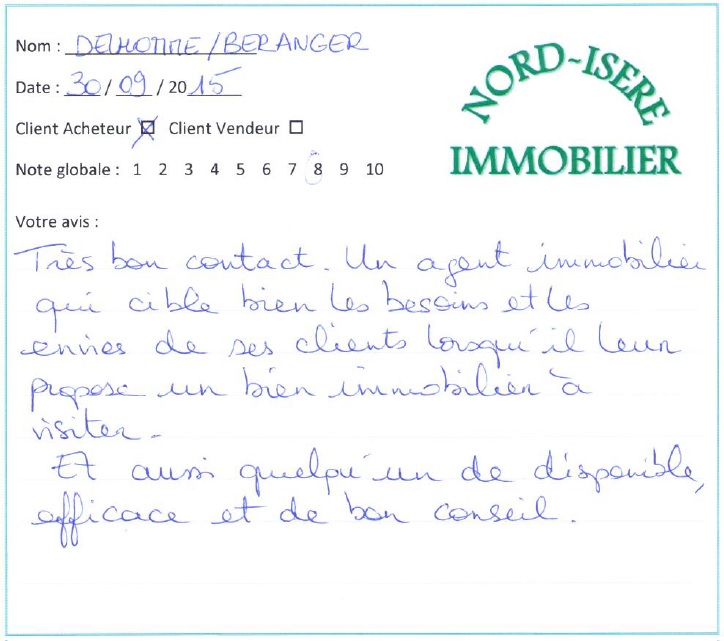 Nom : DELHOMME/BERANGER
Date : 30/09/2015
Client Acheteur ☒ Client Vendeur ☐
Note globale : 1 2 3 4 5 6 7 8 9 10
NORD-ISERE
IMMOBILIER
Votre avis :
Très bon contact. Un agent immobilier
qui cible bien les besoins et les
envies de ses clients lorsqu'il leur
propose un bien immobilier à
visiter.
Et aussi quelqu'un de disponible,
efficace et de bon conseil.